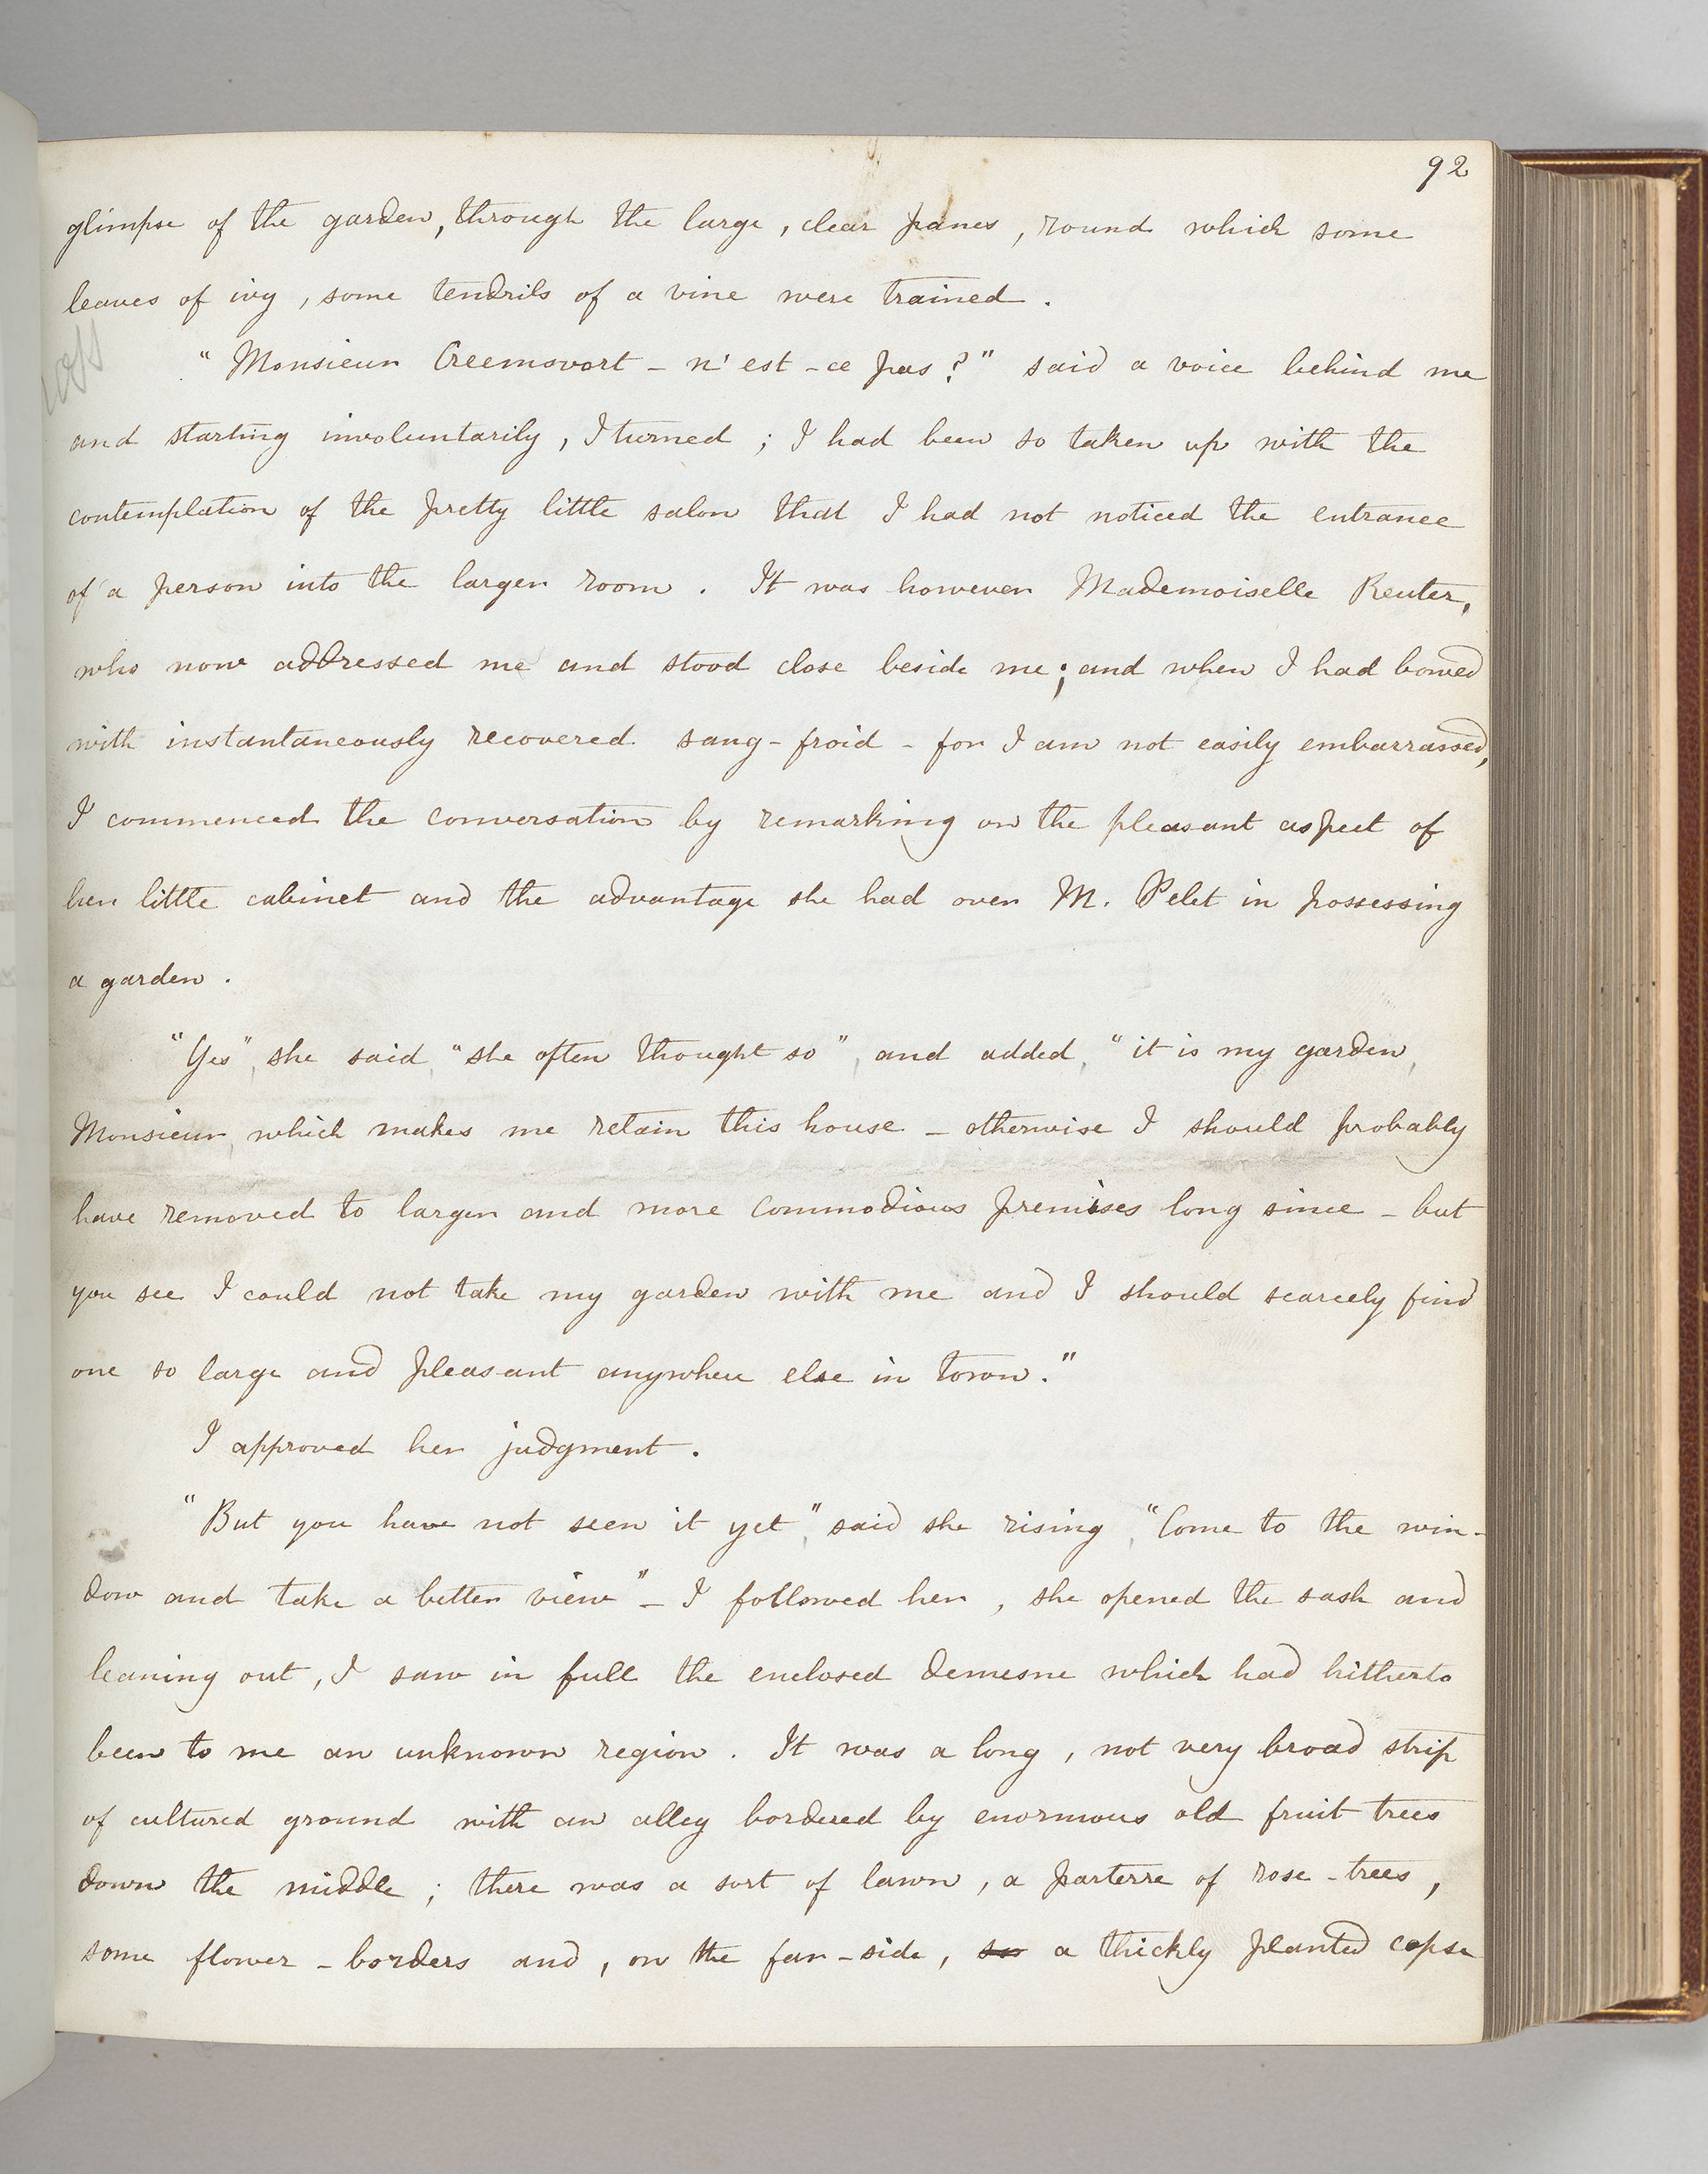 92
glimpse of the garden, through the large, clear panes, round which some
leaves of ivy, some tendrils of a vine were trained.
"Monsieur Creemsvort - n'est-ce pas?" said a voice behind me
and starting involuntarily, I turned; I had been so taken up with the
contemplation of the pretty little salon that I had not noticed the entrance
of a person into the larger room. It was however Mademoiselle Reuter,
who now addressed me and stood close beside me; and when I had bowed
with instantaneously recovered sang-froid - for I am not easily embarrassed,
I commenced the conversation by remarking on the pleasant aspect of
her little cabinet and the advantage she had over M. Pelet in possessing
a garden.
"Yes", she said, "she often thought so", and added, "it is my garden,
Monsieur, which makes me retain this house - otherwise I should probably
have removed to larger and more commodious premises long since - but
you see I could not take my garden with me and I should scarcely find
one so large and pleasant anywhere else in town."
I approved her judgment.
"But you have not seen it yet," said she rising, "Come to the win-
dow and take a better view" - I followed her, she opened the sash and
leaning out, I saw in full the enclosed demesne which had hitherto
been to me an unknown region. It was a long, not very broad strip
of cultured ground with an alley bordered by enormous old fruit trees
down the middle; there was a sort of lawn, a parterre of rose-trees,
some flower-borders and, on the far-side, a thickly planted copse